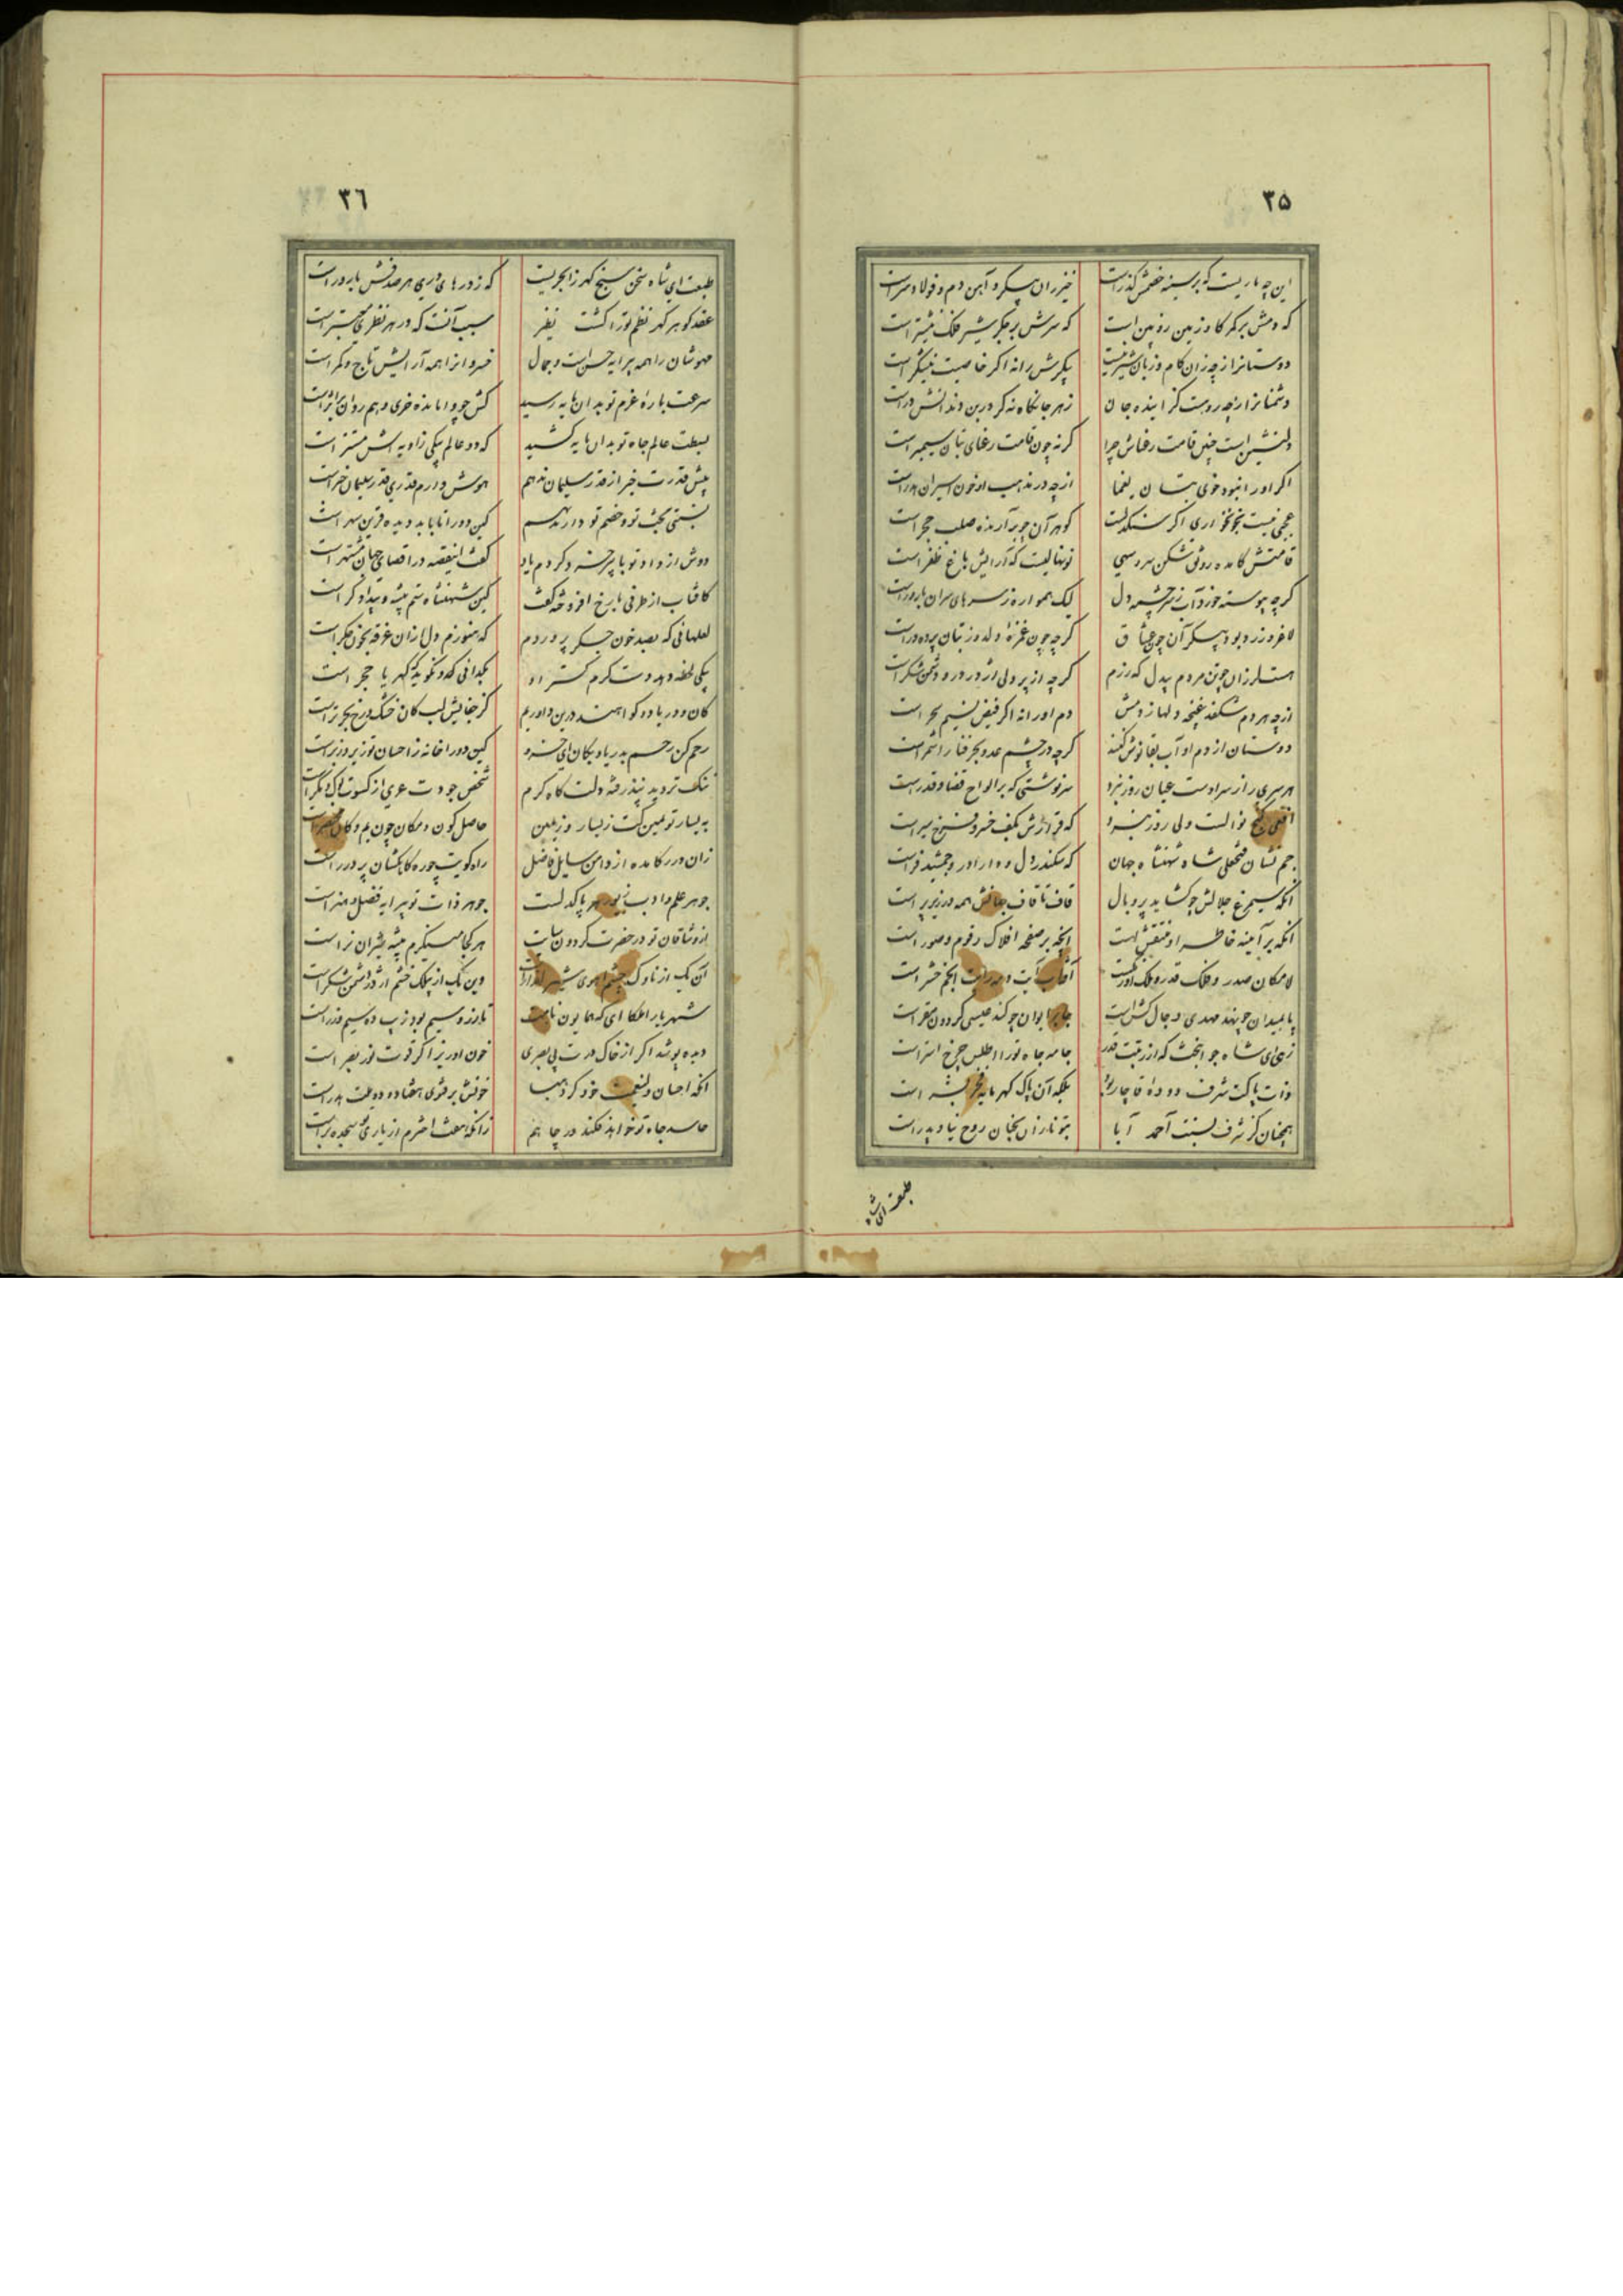 ۳۵
این چه ماریست که بر سینه خصمش گذر است خیزران پیکر و آهن دم و فولاد سر است
که دمش بر کمر گاو زمین روئین است که سرش بر جگر شیر فلک نیشتر است
دوستانرا ازچه زان کام و زبان شیرینیست پیکرش را نه اگر خاصیت نیشکر است
دشمنانرا ازچه روست گزاینده جان زهر جانکاه نه گر در بن دندانش در است
دلنشین است چنین قامت رعناش چرا گر نه چون قامت رعنای بتان سیمبر است
اگر او را نبود خوی بتان یغما ازچه در مذهب او خون اسیران هدر است
عجبی نیست بخونخواری اگر سنگدلست گوهر آن چو برآرنده صلب حجر است
قامتش کامده رونق شکن سرو سهی نونهالیست که آرایش باغ ظفر است
گرچه پیوسته خورد آب ز سرچشمه دل لیک همواره ز سرهای سران بارور است
لاغر و زرد بود پیکر آن چون عشاق گرچه چون غمزه دلدوز بتان پرده در است
هست لرزان چو تن مردم بیدل که رزم گرچه از پر دلی اژدر در و دشمن شکر است
ازچه هر دم شکفد غنچه دلها ز دمش دم او را نه اگر فیض نسیم سحر است
دوستان از دم او آب بقا نوش کنند گرچه در چشم عدو بحر فنا را شمر است
هر سری راز سر اوست عیان روز نبرد سرنوشتی که بر الواح قضا و قدر است
افعی گنج نوالست ولی روز نبرد که قرارش بکف خسرو فرخ سیر است
جم نشان فتحعلی شاه شهنشاه جهان که سکندر دل و دارا در و جمشید فر است
آنکه سیمرغ جلالش چو گشاید پر و بال قاف تا قاف جهانش همه در زیر پر است
آنکه بر آینه خاطر او منتقش است آنچه بر صفحه افلاک رقوم و صور است
لامکان صدر و فلک قدر و ملک آفتاب آیت و مه رایت انجم حشر است
پا بمیدان چو نهد مهدی دجال کش است جا بر ایوان چو کند عیسی گردون مقر است
زهی ای شاه جوانبخت که از رتبت قدر جامه جاه تو را اطلس چرخ آستر است
ذات پاکت شرف دوده قاجار بلکه آن پاک گهر مایه فخر بشر است
همچنان کز شرف نسبت احمد آبا بتو نازان بجنان روح نیا و پدر است
طبعت ای شاه
۳۶
طبعت ای شاه سخن سنج گهرزا بحریست که ز درهای دری هر صدفش بارور است
عقد گوهر گر نظم تو را گشت نظیر سبب آنست که در هر نظری است
مهوشان را همه پیرایه حسن است و جمال خسروانرا همه آرایش تاج و کمر است
سرعت باره عزم تو بدان پایه رسید
بسطت عالم جاه تو بدان پایه کشید که دو عالم بیکی زاویه اش مستتر است
پیش قدرت خبر از قدر سلیمان ندهم هوش دارم قدری قدر سلیمان خبر است
نسبتی بخت تو و خصم تو دارند بهم کین دو را تا بابد دیده قرین سهر است
دوش از داد تو با پیر خرد کردم یاد گفت اینقصه در اقصای جهان مشتهر است
کافتاب از طرفی با رخ افروخته گفت کین شهنشاه ستم پیشه و بیدادگر است
لعلهائی که بصد خون جگر پروردم که هنوزم دل از آن غرقه بخون جگر است
بیکی لحظه دهد دست کرم گستر او بگدائی که نگوید گهر یا حجر است
کان و دریا دو گواهند درین داوریم کز جفایش لب کان خشک و رخ بحر تر است
رحم کن رحم بدریا و بکان ای خسرو کین دو را خانه ز احسان تو زیر و زبر است
ننگ تردید نپذرفته دلت گاه کرم شخص جودت عری از کسوت لیک و مگر است
به یسار تو یمین گشت ز یسار و ز یمین حاصل کون و مکان چون یم و کان است
زان درر کامده از دامن سایل فاضل راه کویت چو ره کاهکشان پر درر است
جوهر علم و ادب زیور هر پاکدلست جوهر ذات تو پیرایه فضل و هنر است
از وشاقان تو در حضرت گردون سایت هر کجا مینگرم بیشه شیران نر است
آن یک از ناوک چشم آهوی شیر وین یک از پلک خشم اژدر دشمن شکر است
شهریار ملکا ای که همایون نامت تا زر و سیم بود زیب ده سیم و زر است
دیده پوشد اگر از خاک درت بی بصری خون او ریز اگر قوت نور بصر است
آنکه احسان ولینعمت خود کرد هبا خونش بر فتوی هفتاد و دو ملت هدر است
حاسد جاه تو خواهد فکند در چاهم زانکه